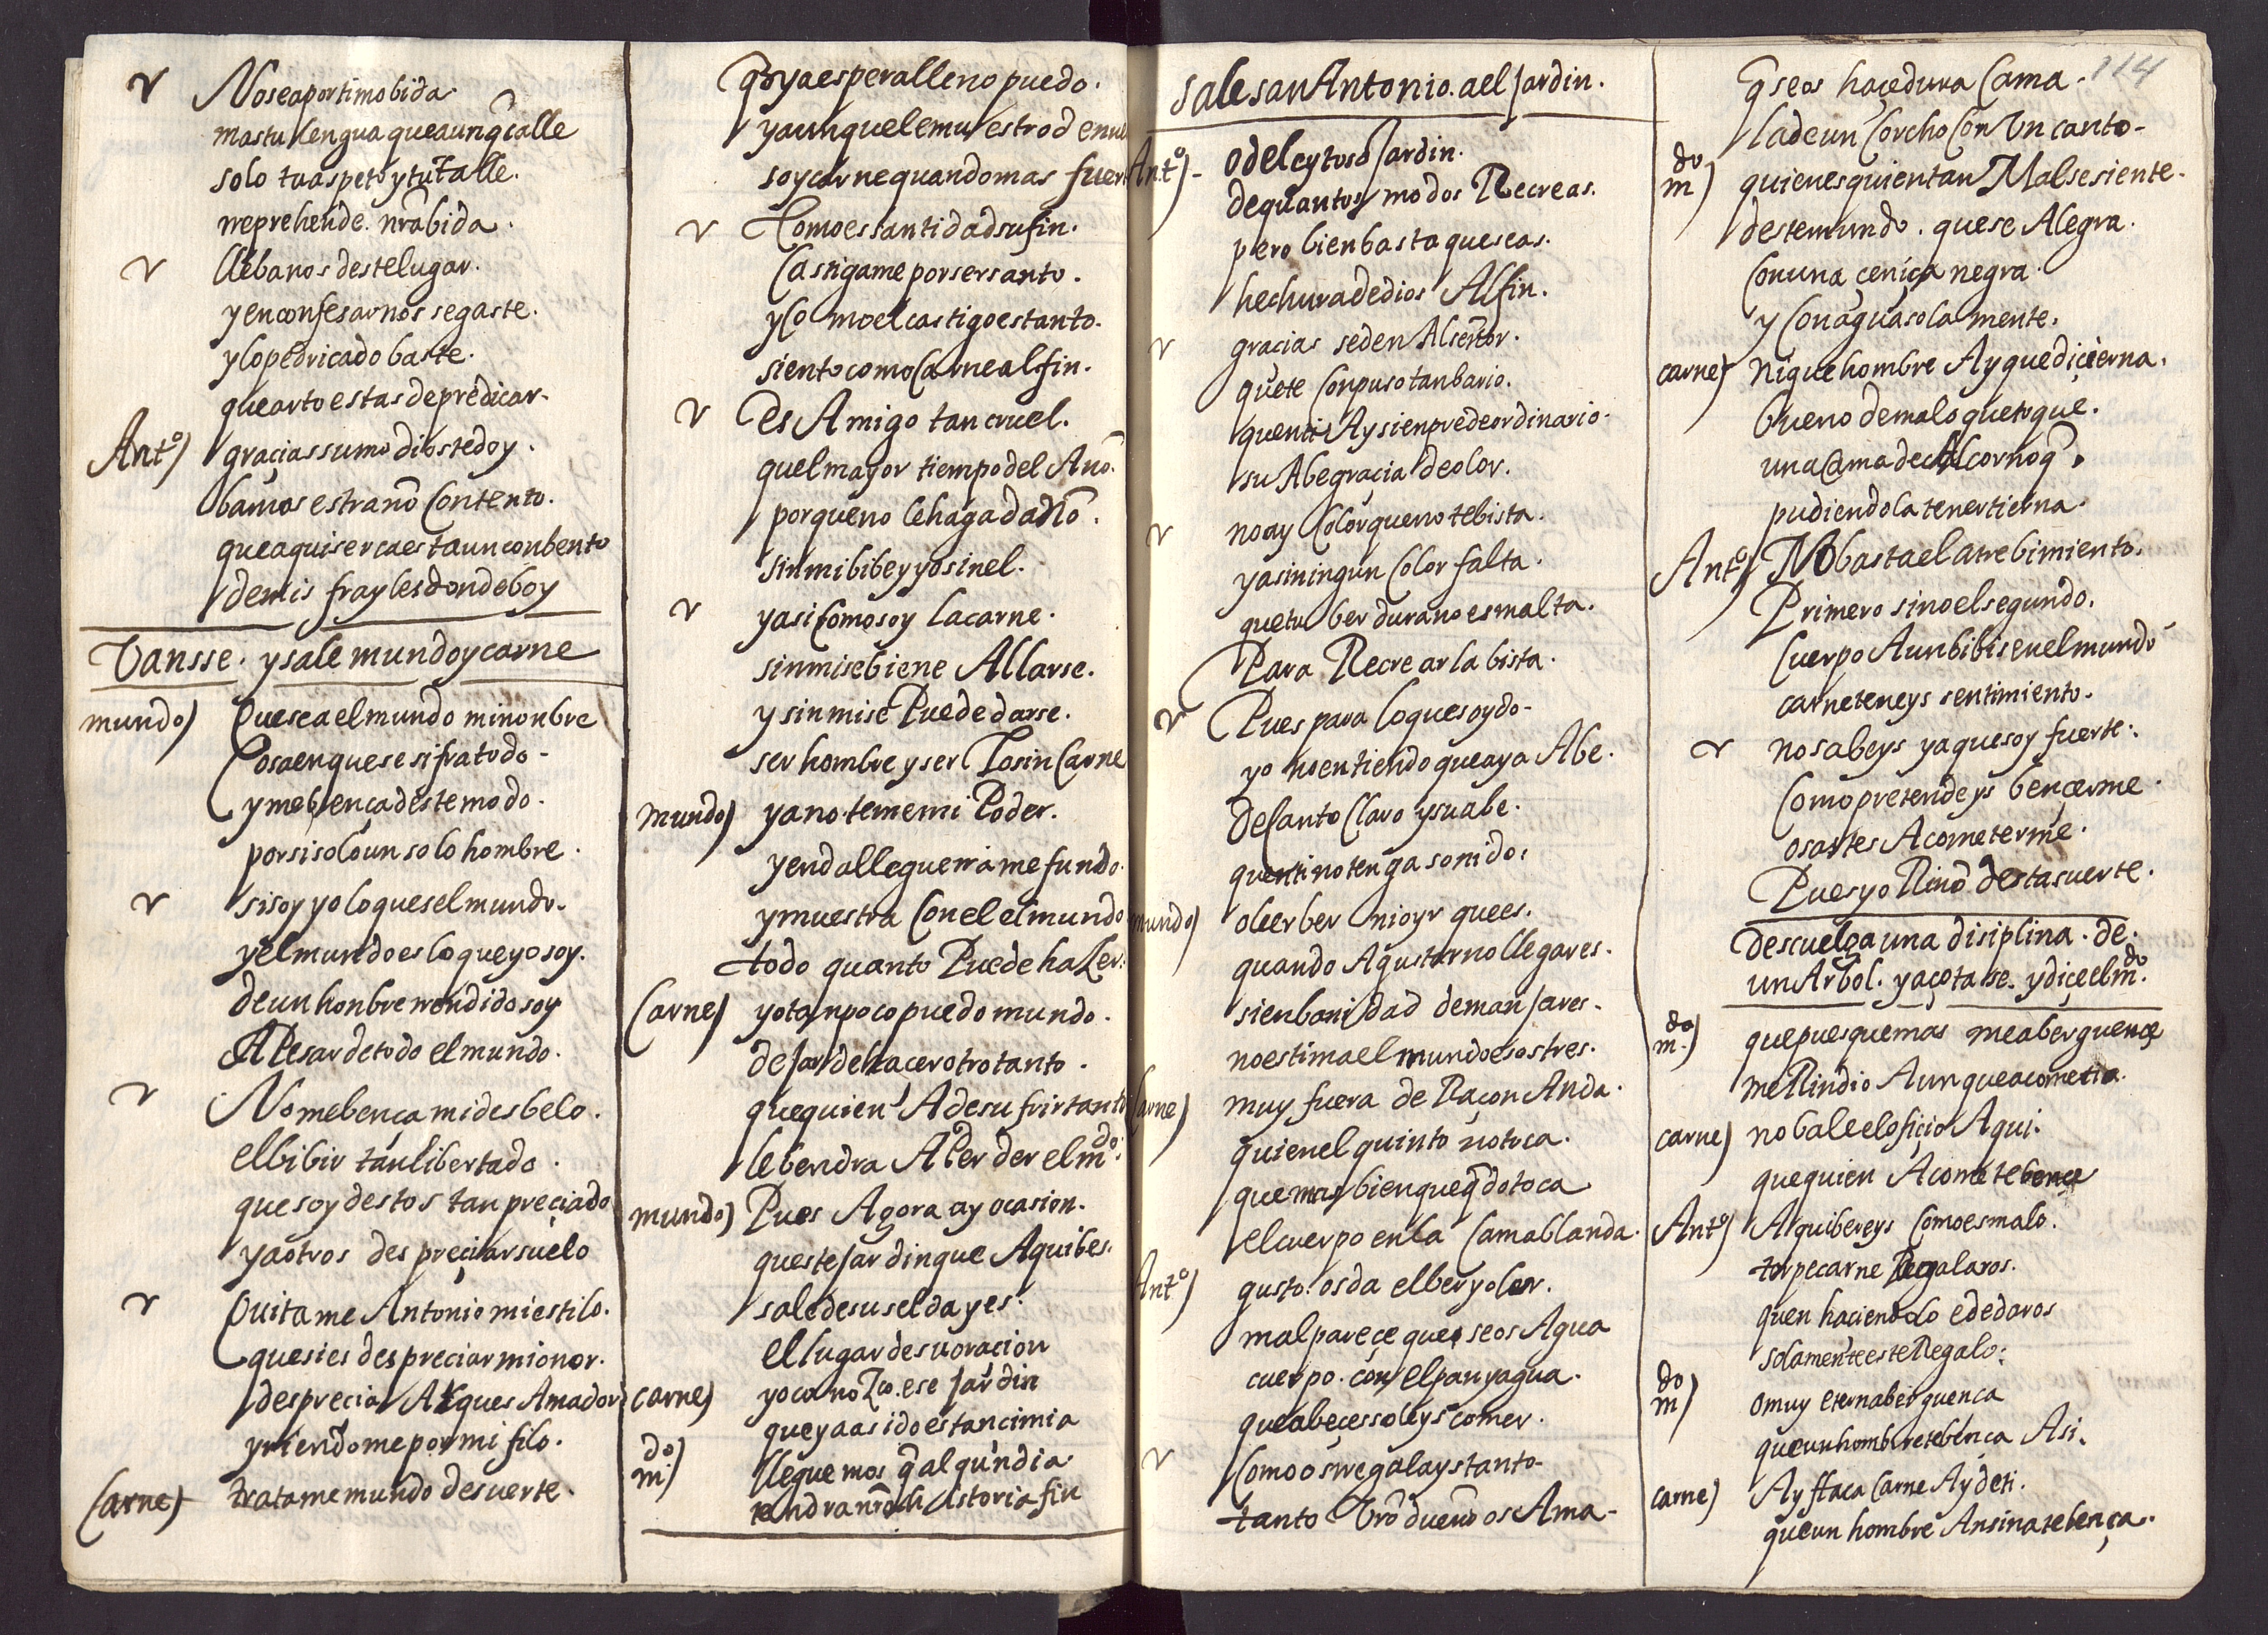 No sea por ti mobida
mas tu lengua que aunq̃ calle
solo tu aspeto y tu talle.
rreprehende. nr̃a bida.
llebanos deste lugar.
y en confesarnos se gaste.
y lo pedricado baste.
que arto estas de predicar.
Antº) graçias sumo dios te doy.
bamos estraño contento.
que aqui serca esta un conbento
de mis frayles donde boy
Vansse. y sale mundo y carne
mundo) Que sea el mundo mi nonbre
Cosa en que se sifra todo.
y me bença deste modo.
por si solo un solo hombre.
si soy yo lo ques el mundo.
y el mundo es lo que yo soy.
de un honbre rrendido soy
A Pesar de todo el mundo.
No me bença mi desbelo.
el bibir tan libertado.
que soy destos tan preçiado
y a otros despreçiar suelo
Quitame Antonio mi estilo.
que si es despreciar mi onor.
desprecia A ques Amador
y riendome por mi filo.
Carne) tratame mundo de suerte.
q̃ ya esperalle no puedo.
y aunque le muestro denue
soy carne quando mas fuer
Como es santidad su fin.
Castigame por ser santo.
y como el castigo es tanto.
siento como Carne al fin.
Es Amigo tan cruel.
quel mayor tiempo del Año.
porque no le haga daño.
sin mi bibe y yo sin el.
y asi como soy la carne.
sin mi se biene Allarse.
y sin mi se Puede darse.
ser hombre y ser Lo sin Carne
mundo) ya no teme mi Poder.
y en dalle guerra me fundo.
y muestra con el el mundo
todo quanto Puede haZer.
Carne) yo tanpoco puedo mundo.
dejar de hacer otro tanto.
que quien A de sufrir tanto
le bendra A Perder el mdo.
mundo) Pues Agora ay ocasion.
queste jardin que Aqui bes.
sale de su selda y es.
el lugar de su oracion
carne) yo canoZco ese jardin
que ya a sido estancia mia
mdo) lleguemos q̃ algun dia
tendra nr̃a historia fin
sale san Antonio. a el jardin.
114
Antº) o delcytoso jardin.
de quantos modos Recreas.
pero bien basta que seas.
hechura de dios Al fin.
gracias se den Al señor.
que te conpuso tan bario.
que en ti Ay sienpre de ordinario.
suAbe gracia de olor.
no ay color que no te bista.
y asi ningun color falta.
que tu berdura no esmalta.
Para Recrear la bista.
Pues para lo que s oydo.
yo no entiendo que aya Abe.
de canto claro y suabe.
que en ti no tenga sonido.
mundo) oler ber ni oyr que es.
quando A gustar no llegares.
si en banidad de manjares.
no estima el mundo esos tres.
carne) muy fuera de Raçon Anda.
quien el quinto no toca.
que mas bien que q̃do toca
el cuerpo en la cama blanda.
Antº) gusto. os da el ber y oler.
mal pareçe que se os Agua
cuerpo. con el pan y agua.
que a beçes soleys comer.
Como os rregalays tanto
tanto Vr̃o dueño os Ama.
q̃ se os haçe dura Cama.
la de un corcho con Un canto.
mdo) quien es quien tan Mal se siente.
deste mundo. que se Alegra.
con una çeniça negra.
y con agua sola mente.
carne) ni que hombre Ay que diçierna.
bueno de malo que toque.
una cama de Alcornoq̃.
pudiendola tener tierna.
Antº) No basta el atrebimiento.
Primero sino el segundo.
cuerpo Aun bibis en el mundo
carne teneys sentimiento.
no sabeys ya que soy fuerte.
como pretendeys bençerme.
osastes Acometerme.
Pues yo Riño desta suerte.
descuelga una disiplina. de.
un Arbol. y açotase. y diçe el mdo.
mdo) que pues que mas me aberguençe
me Rindio Aunque acometia.
carne) no bale el ofiçio Aqui.
que quien Acomete bençe
Antº) Aqui bereys como es malo.
torpe carne Regalaros.
quen haciendolo e de daros
solamente este Regalo.
mdo) o muy eterna berguenca
que un hombre te benca Asi.
carne) Ay flaca carne Ay de ti.
que un hombre Ansina te bença.